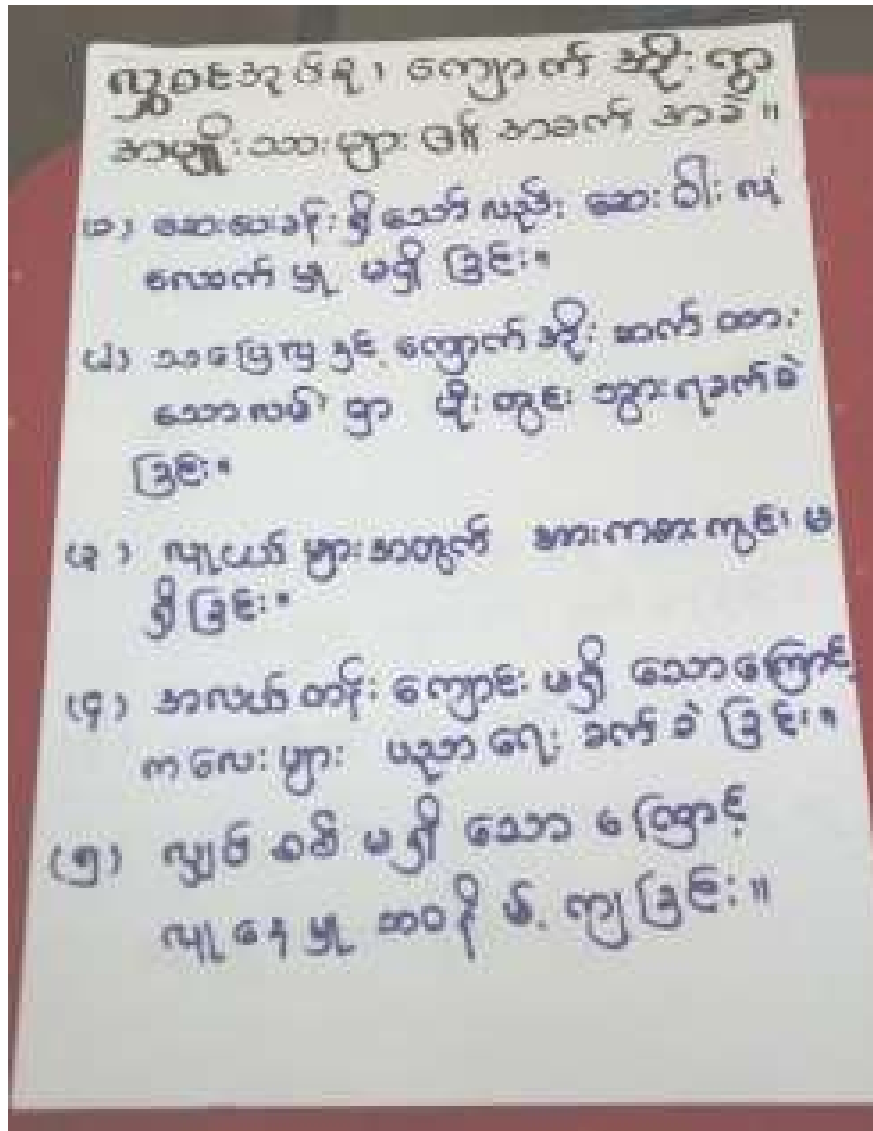 လွှဝင်အုပ်စု၊ ကျောက်အိုးရွာ
အမျိုးသားများ၏ အခက် အခဲ ။
(၁) ဆေးပေးခန်း ရှိသော်လည်း ဆေးဝါး လုံ
လောက် မှု မရှိ ခြင်း။
(၂) သပြေကျ နှင့် ကျောက်အိုး ဆက် ထား
သော လမ်း မှာ မိုးတွင်း သွားရခက်ခဲ
ခြင်း။
(၃) လူငယ် များအတွက် အားကစားကွင်း မ
ရှိခြင်း။
(၄) အလယ်တန်း ကျောင်း မရှိ သောကြောင့်
ကလေးများ ပညာရေး ခက်ခဲ ခြင်း။
(၅) လျှပ်စစ် မရှိ သော ကြောင့်
လူနေမှု ဘဝနိမ့်ကျခြင်း။